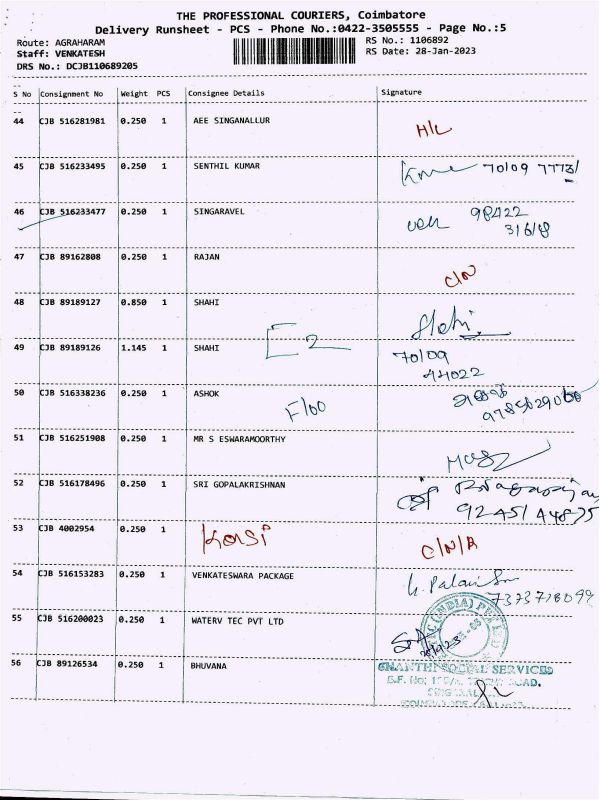 THE PROFESSIONAL COURIERS, Coimbatore
Delivery Runsheet - PCS - Phone No.:0422-3505555 - Page No.:5
Route: AGRAHARAM
RS No.: 1106892
Staff: VENKATESH
RS Date: 28-Jan-2023
DRS No.: DCJB110689205
S No Consignment No Weight PCS Consignee Details Signature
44 CJB 516281981 0.250 1 AEE SINGANALLUR H/L
45 CJB 516233495 0.250 1 SENTHIL KUMAR 70109 7773/
46 CJB 516233477 0.250 1 SINGARAVEL 98422
31618
47 CJB 89162808 0.250 1 RAJAN C/N
48 CJB 89189127 0.850 1 SHAHI
49 CJB 89189126 1.145 1 SHAHI E2 70109
44022
50 CJB 516338236 0.250 1 ASHOK F/00
51 CJB 516251908 0.250 1 MR S ESWARAMOORTHY
52 CJB 516178496 0.250 1 SRI GOPALAKRISHNAN
92451 44875
53 CJB 4002954 0.250 1 C/N/A
54 CJB 516153283 0.250 1 VENKATESWARA PACKAGE
7373718099
55 CJB 516200023 0.250 1 WATERV TEC PVT LTD
56 CJB 89126534 0.250 1 BHUVANA SHANTHI SOCIAL SERVICES